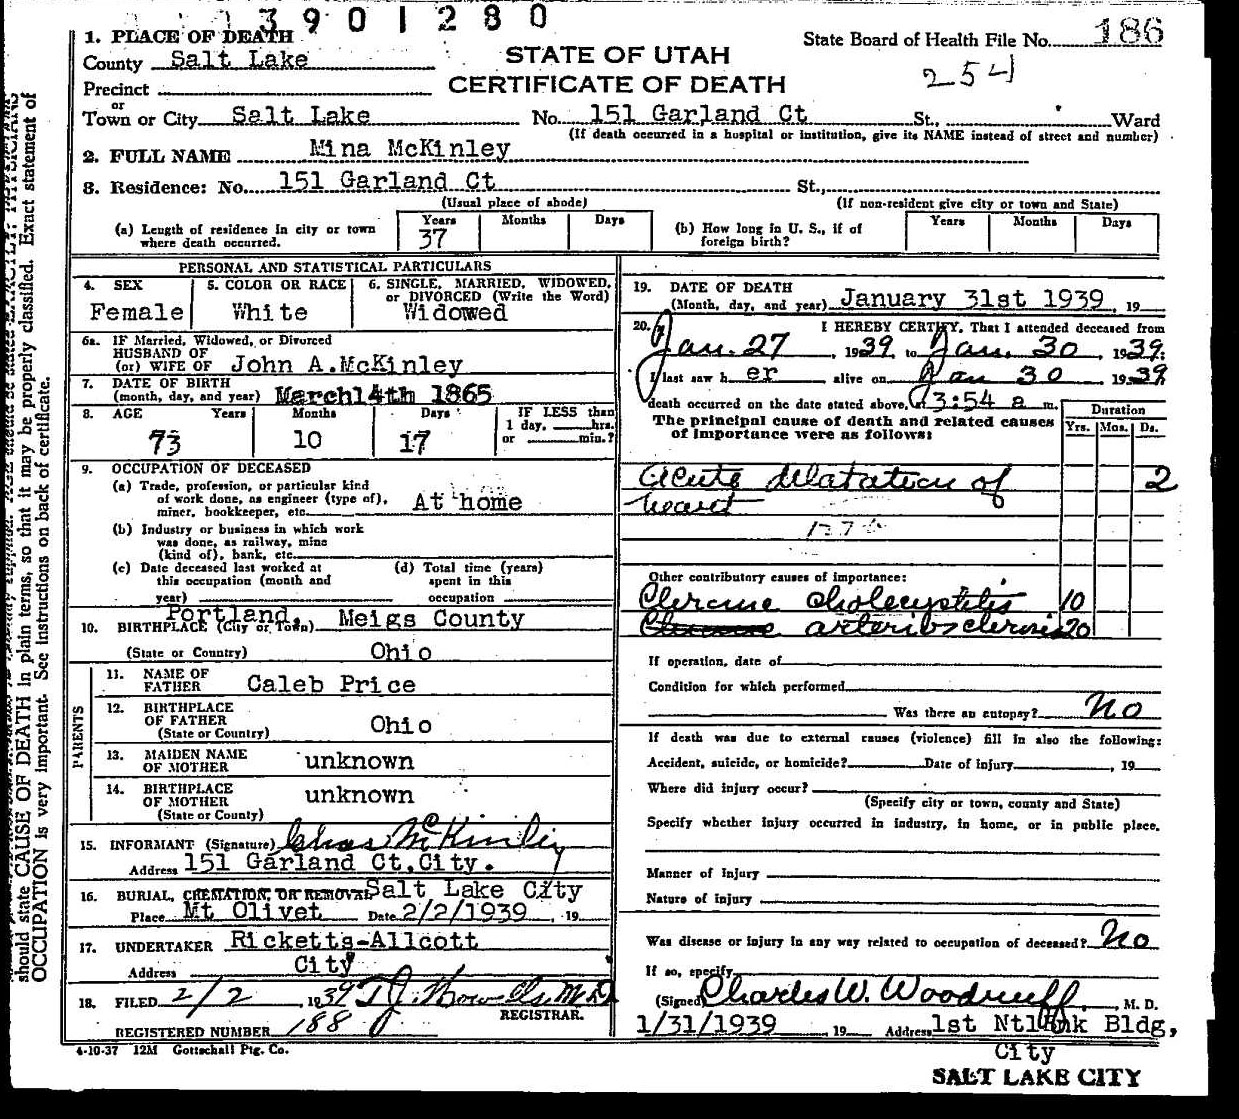 13901280
1. PLACE OF DEATH
County Salt Lake
Precinct
STATE OF UTAH
CERTIFICATE OF DEATH
State Board of Health File No. 186
254
or
Town or City Salt Lake No. 151 Garland Ct St., Ward
(If death occurred in a hospital or institution, give its NAME instead of street and number)
2. FULL NAME Mina McKinley
3. Residence: No. 151 Garland Ct St.,
(Usual place of abode) (If non-resident give city or town and State)
(a) Length of residence in city or town where death occurred. Years 37 Months Days
(b) How long in U. S., if of foreign birth? Years Months Days
PERSONAL AND STATISTICAL PARTICULARS
4. SEX Female
5. COLOR OR RACE White
6. SINGLE, MARRIED, WIDOWED, or DIVORCED (Write the Word) Widowed
6a. IF Married, Widowed, or Divorced
HUSBAND OF
(or) WIFE OF John A.McKinley
7. DATE OF BIRTH
(month, day, and year) March14th 1865
8. AGE Years Months Days IF LESS than
1 day, hrs.
or min.?
73 10 17
9. OCCUPATION OF DECEASED
(a) Trade, profession, or particular kind
of work done, as engineer (type of),
miner, bookkeeper, etc. At home
(b) Industry or business in which work
was done, as railway, mine
(kind of), bank, etc.
(c) Date deceased last worked at
this occupation (month and
year)
(d) Total time (years)
spent in this
occupation
10. BIRTHPLACE (City or Town) Portland, Meigs County
(State or Country) Ohio
PARENTS
11. NAME OF
FATHER Caleb Price
12. BIRTHPLACE
OF FATHER Ohio
(State or Country)
13. MAIDEN NAME
OF MOTHER unknown
14. BIRTHPLACE
OF MOTHER unknown
(State or County)
15. INFORMANT (Signature) Chas McKinley
Address 151 Garland Ct.City.
16. BURIAL, CREMATION, OR REMOVAL Salt Lake City
Place Mt Olivet Date 2/2/1939, 19
17. UNDERTAKER Ricketts-Allcott
Address City
18. FILED 2/2, 1939
REGISTRAR.
REGISTERED NUMBER 188
4-10-37 12M Gottschall Ptg. Co.
19. DATE OF DEATH
(Month, day, and year) January 31st 1939, 19
20. I HEREBY CERTIFY, That I attended deceased from
Jan. 27, 1939, to Jan. 30, 1939:
I last saw h er alive on Jan 30 1939
death occurred on the date stated above, at 3:54 a m.
The principal cause of death and related causes
of importance were as follows:
Duration
Yrs. Mos. Ds.
Acute dilatation of 2
heart
Other contributory causes of importance:
Chronic cholecystitis 10
Chronic arteriosclerosis 20
If operation, date of
Condition for which performed
Was there an autopsy? No
If death was due to external causes (violence) fill in also the following:
Accident, suicide, or homicide? Date of injury, 19
Where did injury occur?
(Specify city or town, county and State)
Specify whether injury occurred in industry, in home, or in public place.
Manner of Injury
Nature of injury
Was disease or injury in any way related to occupation of deceased? No
If so, specify
(Signed) Charles W. Woodruff, M. D.
1/31/1939, 19 Address 1st Ntl Bnk Bldg,
City
SALT LAKE CITY
should state CAUSE OF DEATH in plain terms, so that it may be properly classified. Exact statement of
OCCUPATION is very important. See instructions on back of certificate.